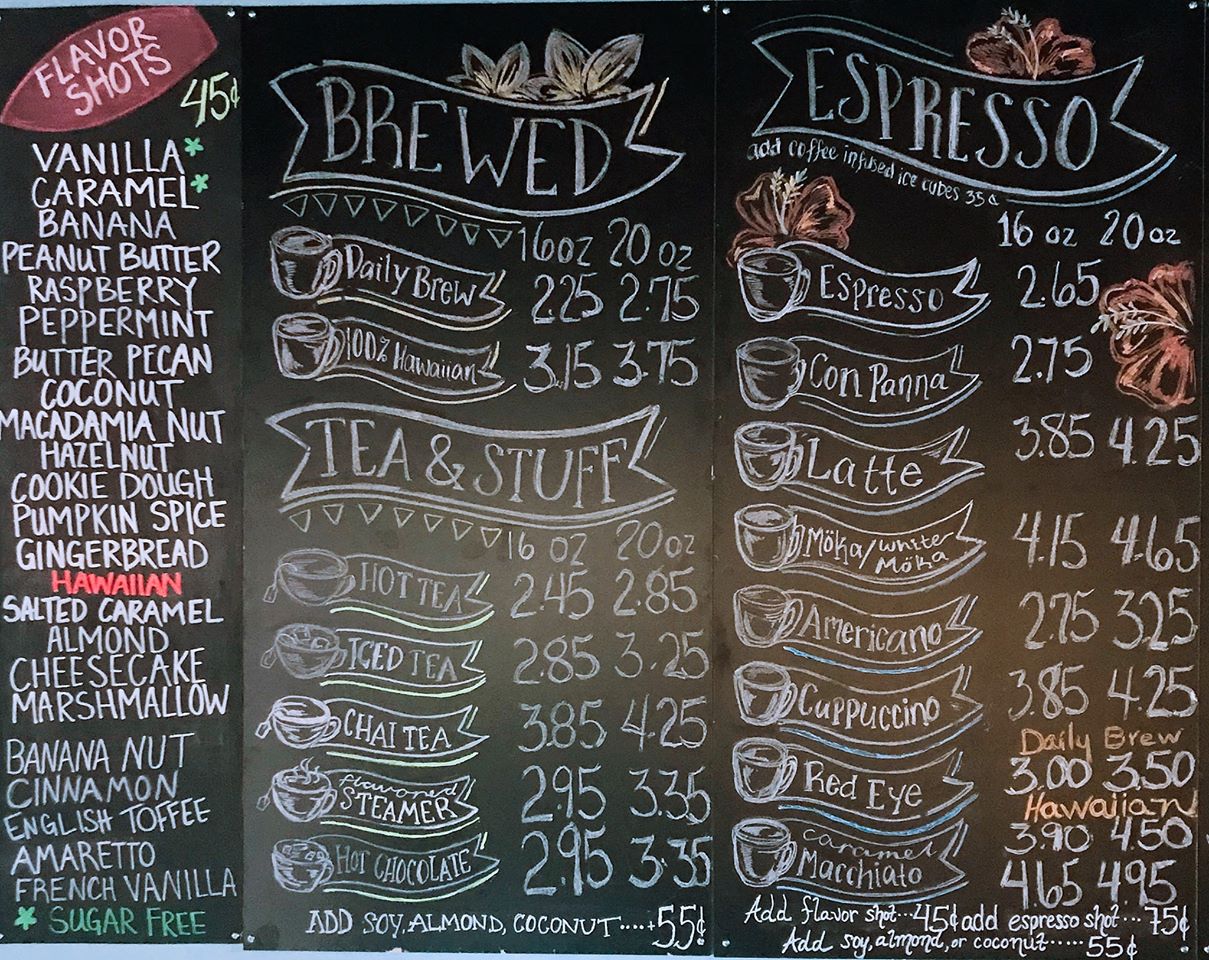 FLAVOR
SHOTS
45¢
VANILLA*
CARAMEL*
BANANA
PEANUT BUTTER
RASPBERRY
PEPPERMINT
BUTTER PECAN
COCONUT
MACADAMIA NUT
HAZELNUT
COOKIE DOUGH
PUMPKIN SPICE
GINGERBREAD
HAWAIIAN
SALTED CARAMEL
ALMOND
CHEESECAKE
MARSHMALLOW
BANANA NUT
CINNAMON
ENGLISH TOFFEE
AMARETTO
FRENCH VANILLA
* SUGAR FREE
BREWED
16oz 20oz
Daily Brew 2.25 2.75
100% Hawaiian 3.15 3.75
TEA & STUFF
16 oz 20oz
HOT TEA 2.45 2.85
ICED TEA 2.85 3.25
CHAI TEA 3.85 4.25
flavored
STEAMER 2.95 3.35
HOT CHOCOLATE 2.95 3.35
ADD SOY, ALMOND, COCONUT....+55¢
ESPRESSO
add coffee infused ice cubes 35¢
16 oz 20oz
Espresso 2.65
Con Panna 2.75
Latte 3.85 4.25
Möka/White
Möka 4.15 4.65
Americano 2.75 3.25
Cappuccino 3.85 4.25
Daily Brew
Red Eye 3.00 3.50
Hawaiian
3.90 4.50
caramel
Macchiato 4.65 4.95
Add flavor shot...45¢ add espresso shot...75¢
Add soy, almond, or coconut.....55¢